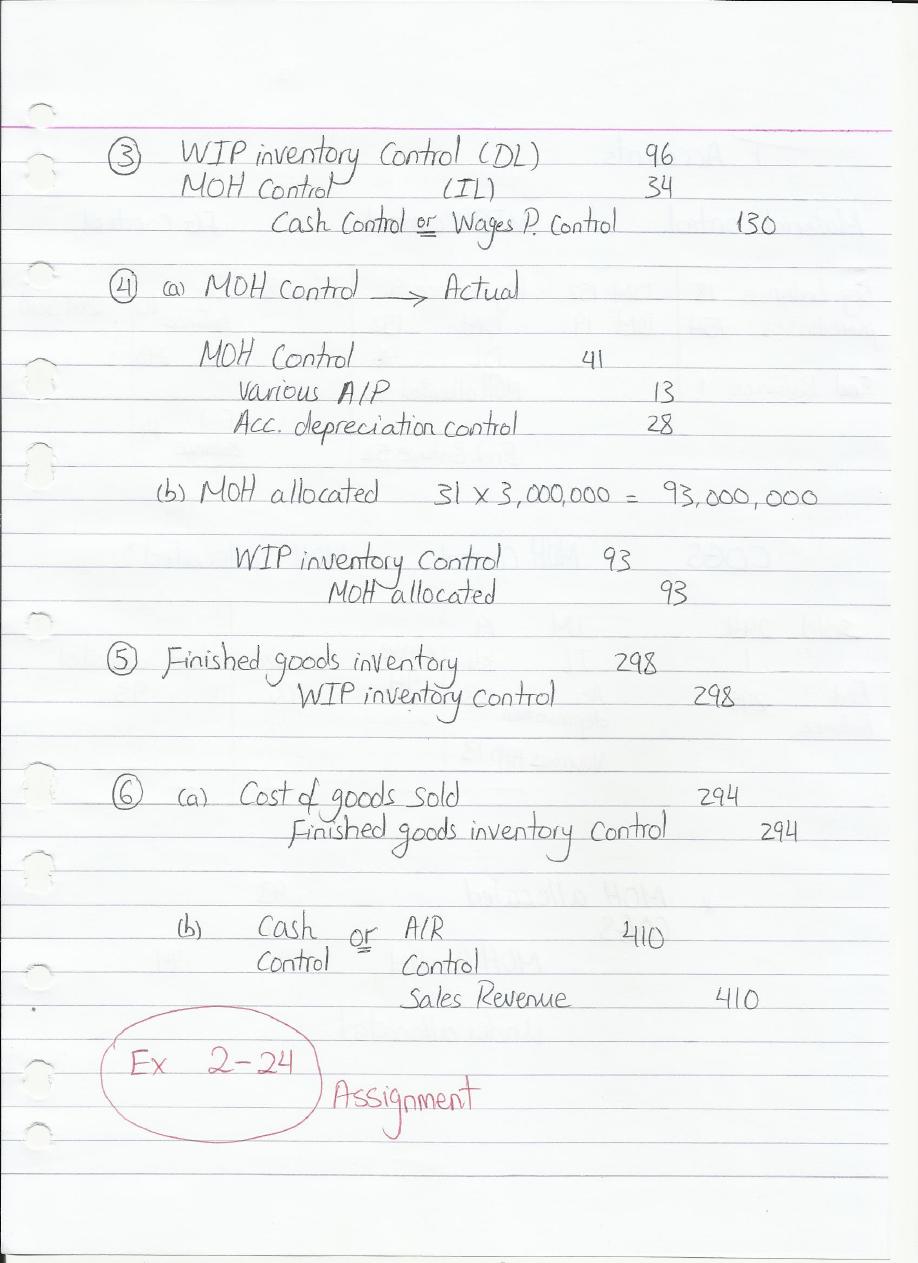 ③ WIP inventory Control (DL) 96
MOH Control (IL) 34
Cash Control or Wages P. Control 130
④ (a) MOH Control → Actual
MOH Control 41
Various A/P 13
Acc. depreciation control 28
(b) MOH allocated 31 × 3,000,000 = 93,000,000
WIP inventory Control 93
MOH allocated 93
⑤ Finished goods inventory 298
WIP inventory control 298
⑥ (a) Cost of goods sold 294
Finished goods inventory control 294
(b) Cash or A/R 410
Control Control
Sales Revenue 410
Ex 2-24
Assignment